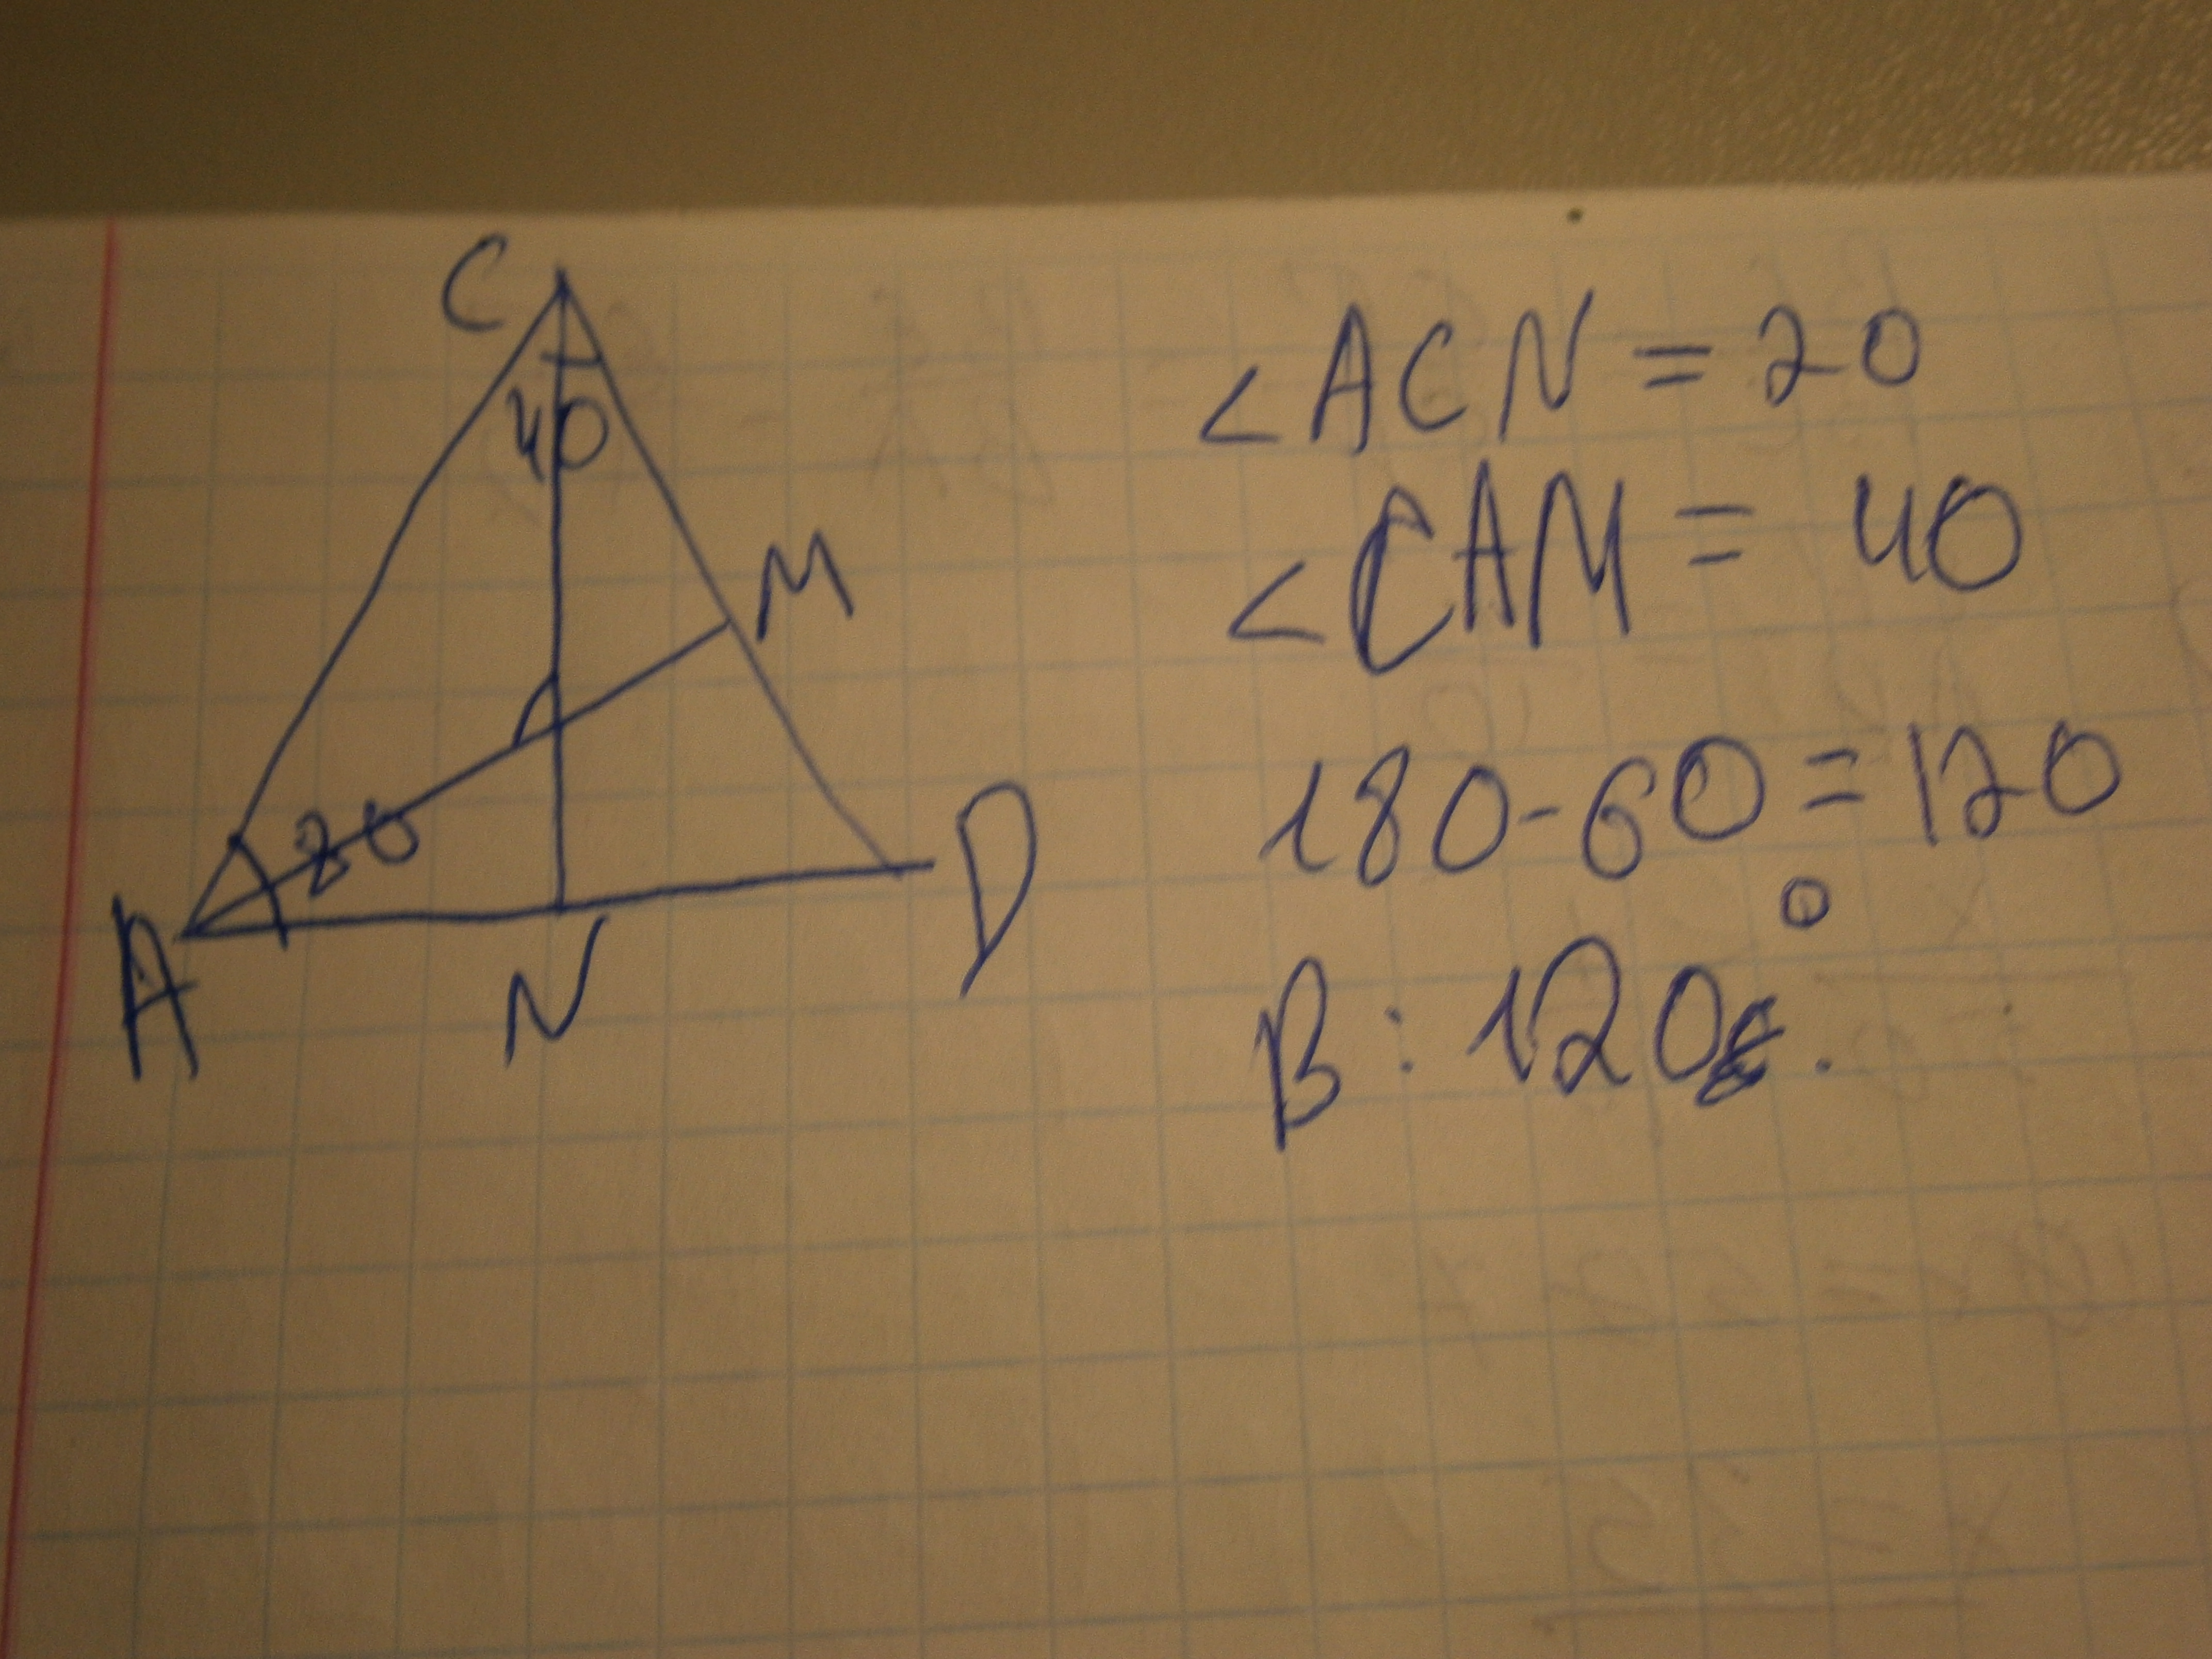 C
40
M
80
A
N
D
<ACN = 20
<CAM = 40
180-60=120
B: 120°.